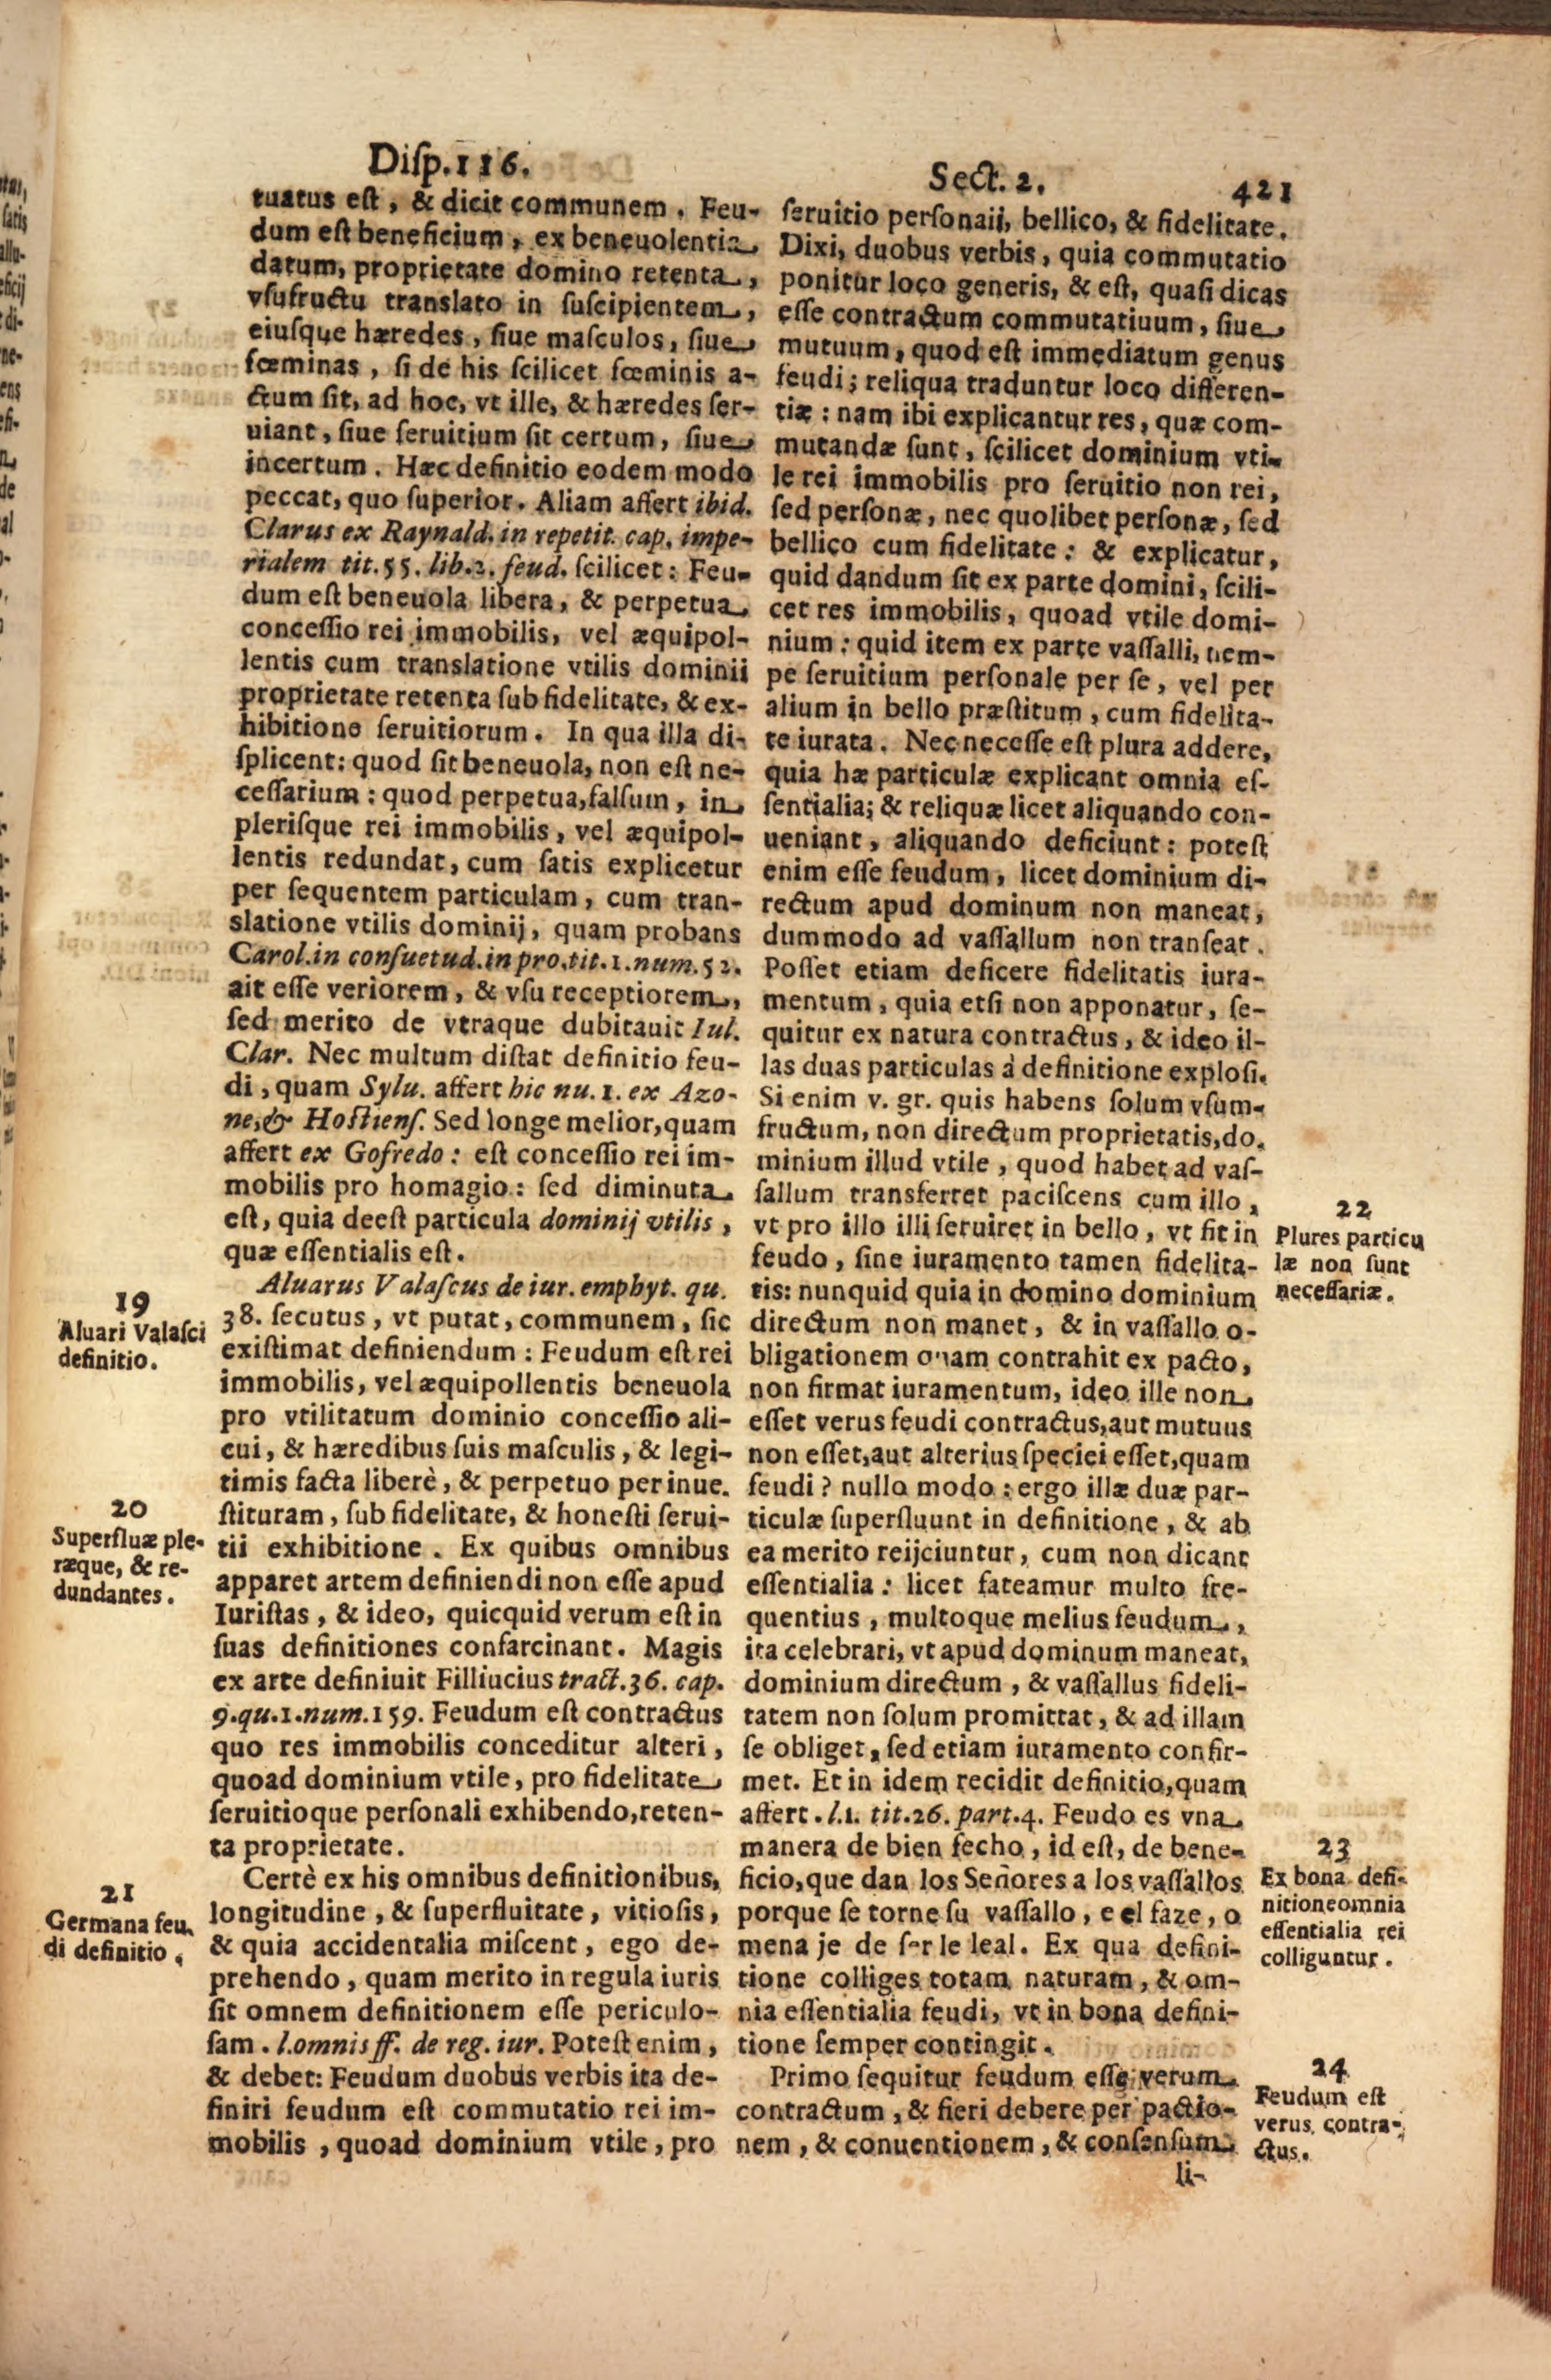 Diſp.116.
Sect. 2.
421
tuatus eſt, & dicit communem. Feu-
dum eſt beneficium, ex beneuolentia
datum, proprietate domino retenta,
vſufructu translato in ſuſcipientem,
eiuſque hæredes, ſiue maſculos, ſiue
fœminas, ſi de his ſcilicet fœminis a-
ctum ſit, ad hoc, vt ille, & hæredes ſer-
uiant, ſiue ſeruitium ſit certum, ſiue
incertum. Hæc definitio eodem modo
peccat, quo ſuperior. Aliam affert ibid.
Clarus ex Raynald. in repetit. cap. impe-
rialem tit.55. lib.2. feud. ſcilicet: Feu-
dum eſt beneuola libera, & perpetua
conceſſio rei immobilis, vel æquipol-
lentis cum translatione vtilis dominii
proprietate retenta ſub fidelitate, & ex-
hibitione ſeruitiorum. In qua illa di-
ſplicent: quod ſit beneuola, non eſt ne-
ceſſarium: quod perpetua, falſum, in
pleriſque rei immobilis, vel æquipol-
lentis redundat, cum ſatis explicetur
per ſequentem particulam, cum tran-
slatione vtilis dominij, quam probans
Carol.in conſuetud.in pro.tit.1.num.52.
ait eſſe veriorem, & vſu receptiorem,
ſed merito de vtraque dubitauit Iul.
Clar. Nec multum diſtat definitio feu-
di, quam Sylu. affert hic nu.1. ex Azo-
ne,& Hoſtienſ. Sed longe melior, quam
affert ex Gofredo: eſt conceſſio rei im-
mobilis pro homagio: ſed diminuta
eſt, quia deeſt particula dominij vtilis,
quæ eſſentialis eſt.
19
Aluari Valaſci
definitio.
Aluarus Valaſcus de iur. emphyt. qu.
38. ſecutus, vt putat, communem, ſic
exiſtimat definiendum: Feudum eſt rei
immobilis, vel æquipollentis beneuola
pro vtilitatum dominio conceſſio ali-
cui, & hæredibus ſuis maſculis, & legi-
timis facta liberè, & perpetuo per inue-
ſtituram, ſub fidelitate, & honeſti ſerui-
20
Superfluæ ple-
ræque, & re-
dundantes.
tii exhibitione. Ex quibus omnibus
apparet artem definiendi non eſſe apud
Iuriſtas, & ideo, quicquid verum eſt in
ſuas definitiones conſarcinant. Magis
ex arte definiuit Filliucius tract.36. cap.
9.qu.1.num.159. Feudum eſt contractus
quo res immobilis conceditur alteri,
quoad dominium vtile, pro fidelitate
ſeruitioque perſonali exhibendo, reten-
ta proprietate.
21
Germana feu-
di definitio.
Certè ex his omnibus definitionibus,
longitudine, & ſuperfluitate, vitioſis,
& quia accidentalia miſcent, ego de-
prehendo, quam merito in regula iuris
ſit omnem definitionem eſſe periculo-
ſam. l.omnis ff. de reg. iur. Poteſt enim,
& debet: Feudum duobus verbis ita de-
finiri feudum eſt commutatio rei im-
mobilis, quoad dominium vtile, pro
ſeruitio perſonali, bellico, & fidelitate.
Dixi, duobus verbis, quia commutatio
ponitur loco generis, & eſt, quaſi dicas
eſſe contractum commutatiuum, ſiue
mutuum, quod eſt immediatum genus
feudi; reliqua traduntur loco differen-
tiæ: nam ibi explicantur res, quæ com-
mutandæ ſunt, ſcilicet dominium vti-
le rei immobilis pro ſeruitio non rei,
ſed perſonæ, nec quolibet perſonæ, ſed
bellico cum fidelitate: & explicatur,
quid dandum ſit ex parte domini, ſcili-
cet res immobilis, quoad vtile domi-
nium: quid item ex parte vaſſalli, nem-
pe ſeruitium perſonale per ſe, vel per
alium in bello præſtitum, cum fidelita-
te iurata. Nec neceſſe eſt plura addere,
quia hæ particulæ explicant omnia eſ-
ſentialia; & reliquæ licet aliquando con-
ueniant, aliquando deficiunt: poteſt
enim eſſe feudum, licet dominium di-
rectum apud dominum non maneat,
dummodo ad vaſſallum non tranſeat.
Poſſet etiam deficere fidelitatis iura-
mentum, quia etſi non apponatur, ſe-
quitur ex natura contractus, & ideo il-
las duas particulas à definitione exploſi.
Si enim v. gr. quis habens ſolum vſum-
fructum, non directum proprietatis, do-
minium illud vtile, quod habet ad vaſ-
ſallum transferret paciſcens cum illo,
vt pro illo illi ſeruiret in bello, vt fit in
feudo, ſine iuramento tamen fidelita-
22
Plures particu
læ non ſunt
neceſſariæ.
tis: nunquid quia in domino dominium
directum non manet, & in vaſſallo o-
bligationem quam contrahit ex pacto,
non firmat iuramentum, ideo ille non
eſſet verus feudi contractus, aut mutuus
non eſſet, aut alterius ſpeciei eſſet, quam
feudi? nullo modo: ergo illæ duæ par-
ticulæ ſuperfluunt in definitione, & ab
ea merito reijciuntur, cum non dicant
eſſentialia: licet fateamur multo fre-
quentius, multoque melius feudum,
ita celebrari, vt apud dominum maneat,
dominium directum, & vaſſallus fideli-
tatem non ſolum promittat, & ad illam
ſe obliget, ſed etiam iuramento confir-
met. Et in idem recidit definitio, quam
affert. l.1. tit.26. part.4. Feudo es vna
manera de bien fecho, id eſt, de bene-
ficio, que dan los Señores a los vaſſallos
porque ſe torne ſu vaſſallo, e el faze, o
mena je de ſer le leal. Ex qua defini-
tione colliges totam naturam, & om-
nia eſſentialia feudi, vt in bona defini-
tione ſemper contingit.
23
Ex bona defi-
nitione omnia
eſſentialia rei
colliguntur.
Primo ſequitur feudum eſſe verum
contractum, & fieri debere per pactio-
nem, & conuentionem, & conſenſum
24
Feudum eſt
verus contra-
ctus.
li-